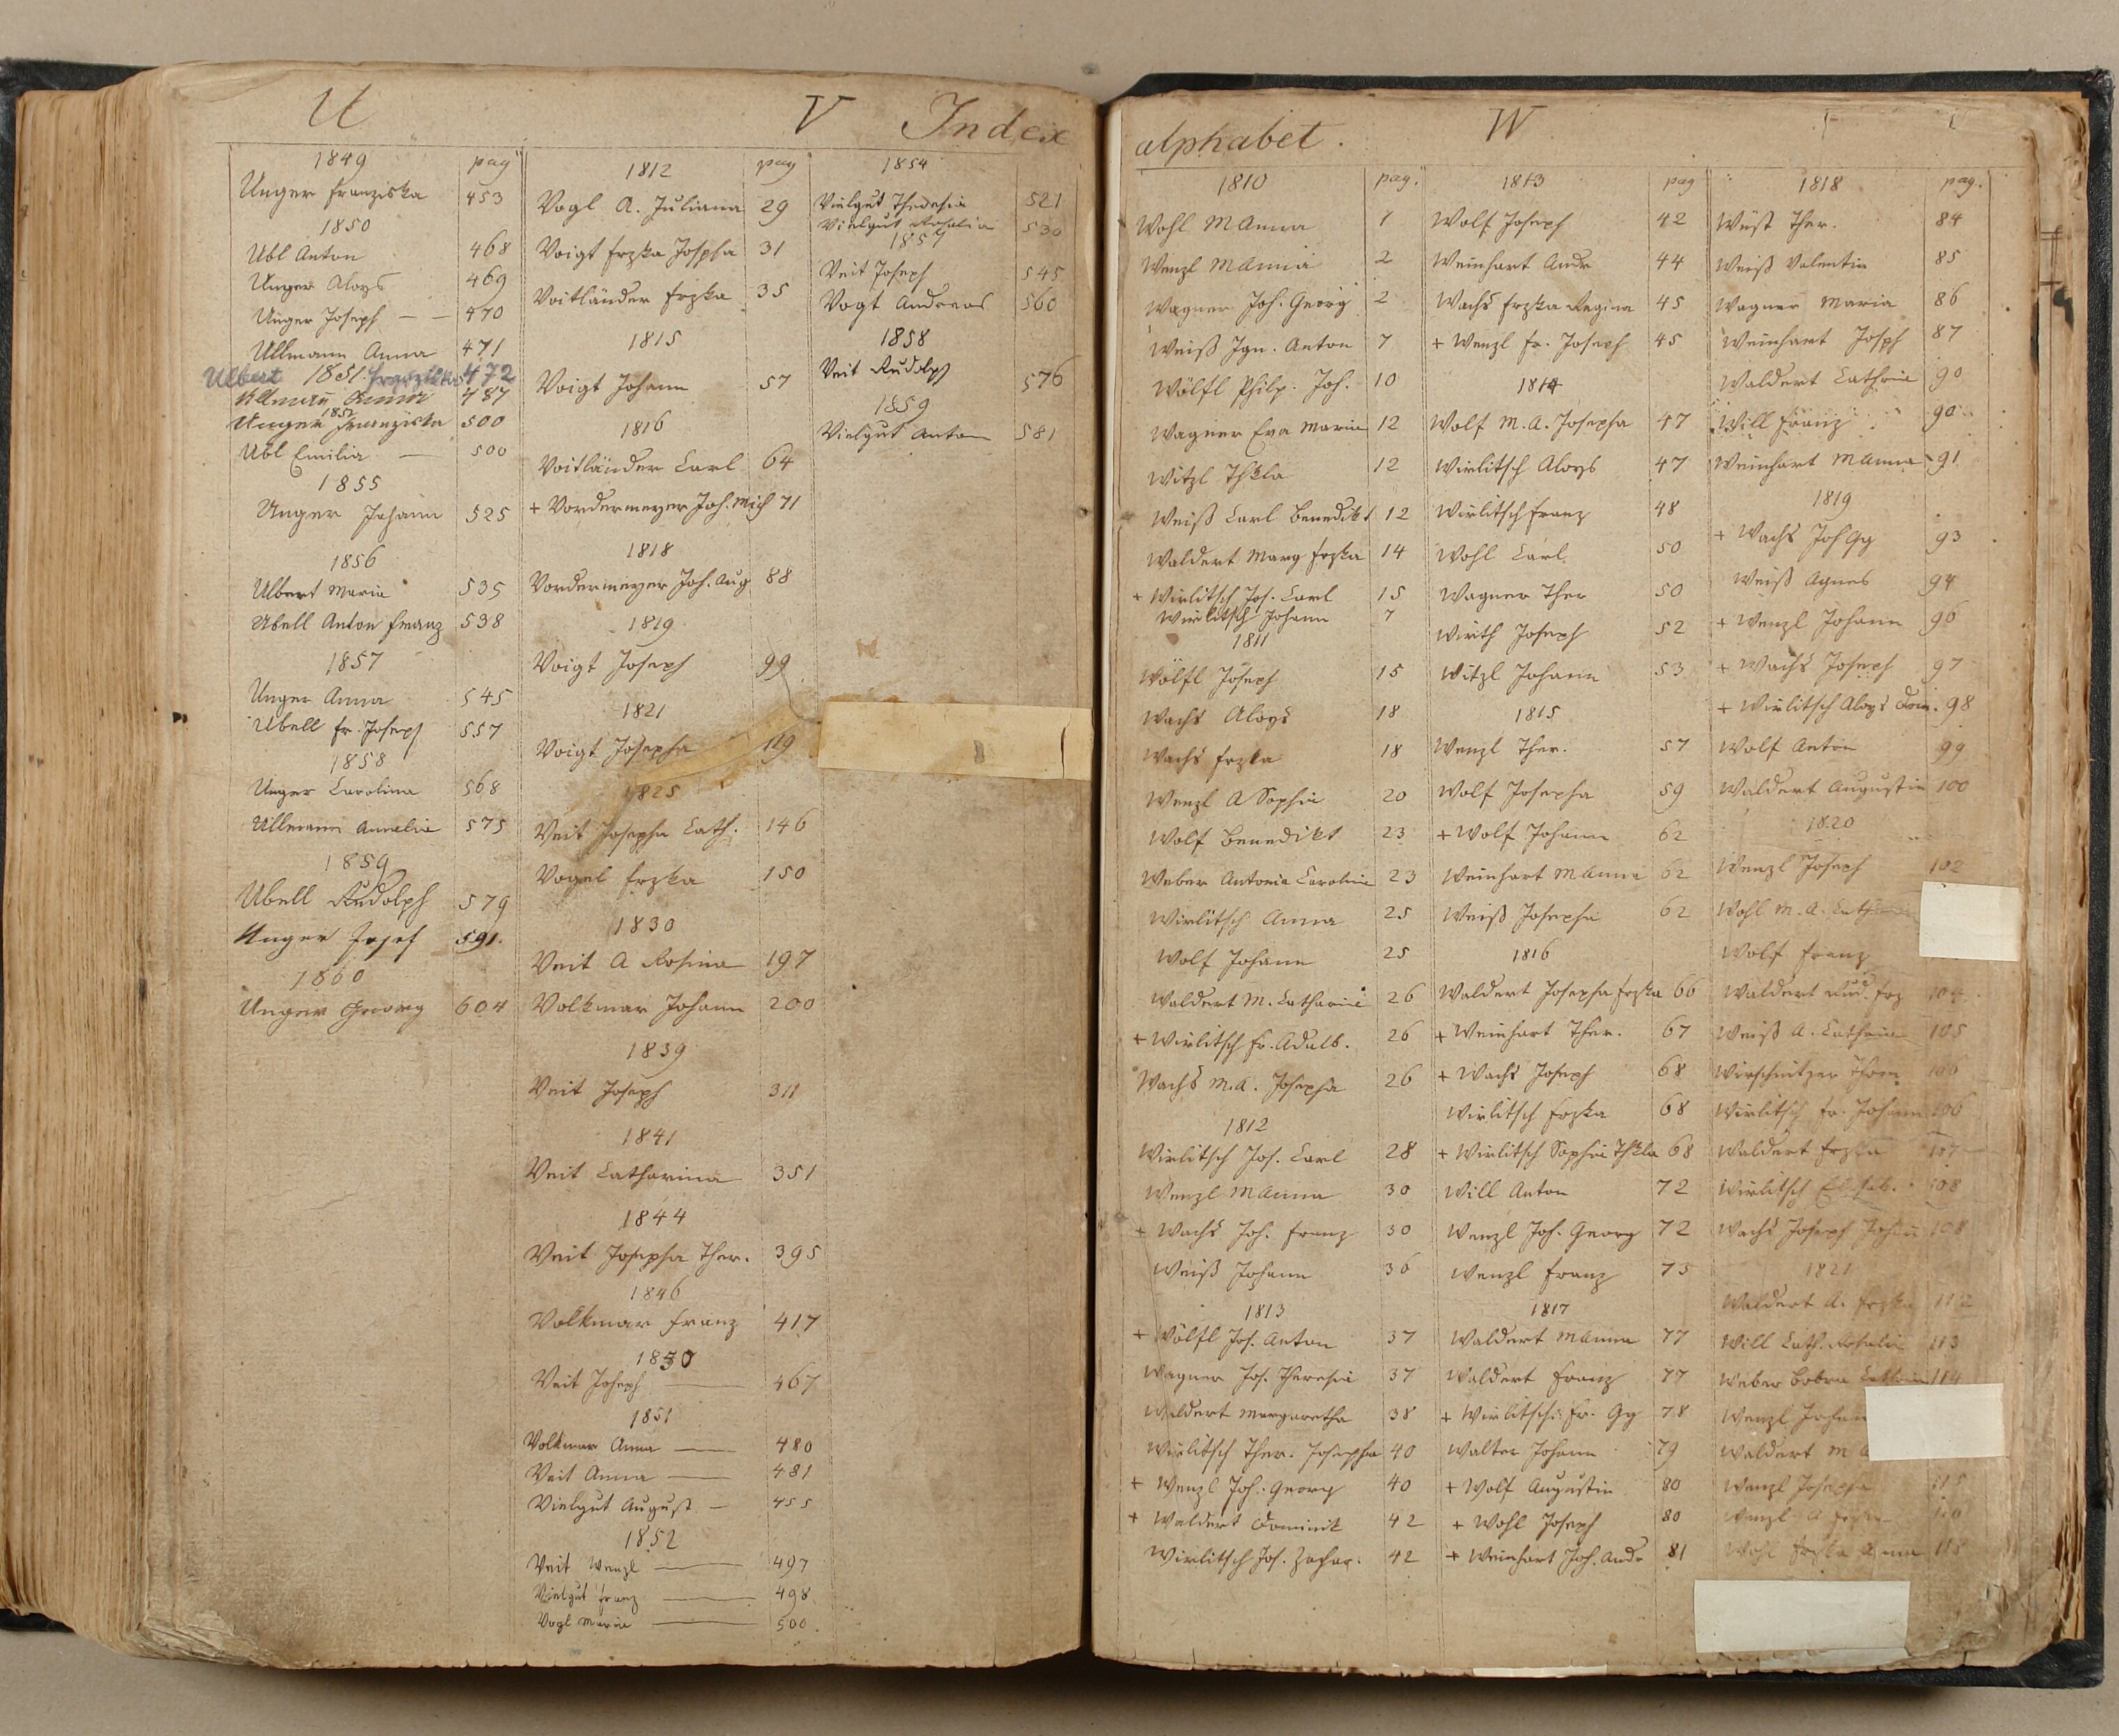 U
V Index
1849 pag
Unger Franziska 453
1850
Ubl Anton 468
Unger Aloys 469
Unger Joseph — — 470
Ullmann Anna 471
Ulbert 1851. Franziska 472
Ullmann Anna 487
1852
Unger Franziska 500
Ubl Emilia — 500
1855
Unger Johann 525
1856
Ulbert Maria 535
Ubell Anton Franz 538
1857
Unger Anna 545
Ubell Fr. Joseph 557
1858
Unger Carolina 568
Ullmann Amalia 575
1859
Ubell Rudolph 579
Unger Josef 591.
1860
Unger Georg 604
1812 pag
Vogl A. Juliana 29
Voigt Frzka Jospha 31
Voitländer Frzka 35
1815
Voigt Johann 57
1816
Voitländer Carl 64
+ Vordermeyer Joh. Mich 71
1818
Vordermeyer Joh. Aug 88
1819
Voigt Joseph 99
1821
Voigt Josepha 119
1825
Veit Josepha Cath. 146
Vogel Frzka 150
1830
Veit A Rosina 197
Volkmar Johann 200
1839
Veit Joseph 311
1841
Veit Catharina 351
1844
Veit Josepha Ther. 395
1846
Volkmar Franz 417
1850
Veit Joseph — 467
1851
Volkmar Anna — 480
Veit Anna — 481
Vielgut August — 455
1852
Veit Wenzl — 497
Vielgut Franz — 498
Vogl Maria — 500.
1854
Vielgut Theresia 521
Vielgut Rosalia 530
1857
Veit Joseph 545
Vogt Andreas 560
1858
Veit Rudolph 576
1859
Vielgut Anton 581
alphabet. W
1810 pag.
Wohl MAnna 1
Wenzl MAnna 2
Wagner Joh. Georg 2
Weiß Ign. Anton 7
Wölfl Philp. Joh. 10
Wagner Eva Maria 12
Witzl Thkla 12
Weiß Carl Benedikt 12
Waldert Marg Frzka 14
+ Wirlitsch Jos. Carl 15
Wirlitsch Johann 7
1811
Wölfl Joseph 15
Wachs Aloys 18
Wachs Frzka 18
Wenzl A Sophia 20
Wolf Benedikt 23
Weber Antonia Carolina 23
Wirlitsch Anna 25
Wolf Johann 25
Waldert M. Catharina 26
+ Wirlitsch Fr. Adalb. 26
Wachs M.A. Josepha 26
1812
Wirlitsch Jos. Carl 28
Wenzl MAnna 30
+ Wachs Joh. Franz 30
Weiß Johann 36
1813
+ Wölfl Jos. Anton 37
Wagner Jos. Theresia 37
Waldert Margaretha 38
Wirlitsch Ther. Josepha 40
+ Wenzl Joh. Georg 40
+ Waldert Dominik 42
Wirlitsch Jos. Zachar. 42
1813 pag
Wolf Joseph 42
Weinhart Andr 44
Wachs Frzka Regina 45
+ Wenzl Fr. Joseph 45
1814
Wolf M.A. Josepha 47
Wirlitsch Aloys 47
Wirlitsch Franz 48
Wohl Carl 50
Wagner Ther 50
Wirth Joseph 52
Witzl Johann 53
1815
Wenzl Ther. 57
Wolf Josepha 59
+ Wolf Johann 62
Weinhart MAnna 62
Weiß Josepha 62
1816
Waldert Josepha Frzka 66
+ Weinhart Ther. 67
+ Wachs Joseph 68
Wirlitsch Frzka 68
+ Wirlitsch Sophia Thkla 68
Will Anton 72
Wenzl Joh. Georg 72
Wenzl Franz 75
1817
Waldert MAnna 77
Waldert Franz 77
+ Wirlitsch Fr. Gg 78
Walter Johann 79
+ Wolf Augustin 80
+ Wohl Joseph 80
+ Weinhart Joh. Andr 81
1818 pag.
Wüst Ther. 84
Weiß Valentin 85
Wagner Maria 86
Weinhart Josph 87
Waldert Cathrin 90
Will Franz 90
Weinhart MAnna 91
1819
+ Wachs Joh Gg 93
Weiß Agnes 94
+ Wenzl Johann 96
+ Wachs Joseph 97
+ Wirlitsch Aloys Dom. 98
Wolf Anton 99
Waldert Augustin 100
1820
Wenzl Joseph 102
Wohl M.A.
Wolf Franz
Waldert Rud. Frz 104
Weiß A. Cathrina 105
Wirschnitzer 106
Wirlitsch Fr. Johann 106
Waldert Frzka 107
Wirlitsch Elisab. 108
Wachs Joseph Johann 108
1821
Waldert A. Frzka 112
Will Cath. Rosalia 113
Weber Bobra 114
Wenzl Johan
Waldert M A
Wenzl Josepha 115
Wenzl A
Wohl Frzka Anna 118